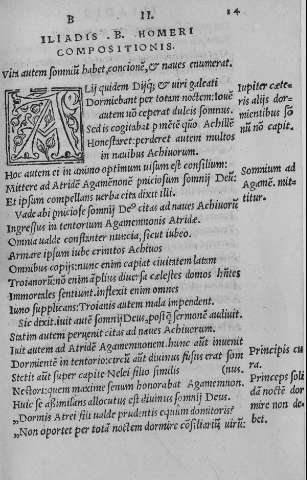 B II. 14
ILIADIS .B. HOMERI
COMPOSITIONIS.
Vita autem somniũ habet, concionẽ, & naues enumerat.
ALij quidem Dijq; & uiri galeati
Dormiebant per totam noctem: Iouẽ
autem nõ ceperat dulcis somnus.
Sed is cogitabat p mẽtẽ quo Achillẽ
Honestaret: perderet autem multos
in nauibus Achiuorum.
Iupiter cæte-
ris alijs dor-
mientibus sõ
nũ nõ capit.
Hoc autem ei in animo optimum uisum est consilium:
Mittere ad Atridẽ Agamẽnonẽ pniciosum somnij Deũ:
Et ipsum compellans uerba cita dixit illi.
Somnium ad
Agamẽ. mita
titur.
Vade abi pniciose somnij Deus citas ad naues Achiuorũ
Ingressus in tentorium Agamemnonis Atridæ.
Omnia ualde constanter nuncia, sicut iubeo.
Armare ipsum iube crinitos Achiuos
Omnibus copijs: nunc enim capiat ciuitatem latam
Troianorũ: nõ enim ãplius diuersa cælestes domos hñtes
Immortales sentiunt. inflexit enim omnes
Iuno supplicans: Troianis autem mala impendent.
Sic dixit. iuit autẽ somnij Deus, postq̃ sermonẽ audiuit.
Statim autem peruenit citas ad naues Achiuorum.
Iuit autem ad Atridẽ Agamemnonem. hunc aũt inuenit
Dormientẽ in tentorio: circũ aũt diuinus fusus erat som
Stetit aũt super capite Nelei filio similis (nus.
Nestori: quem maxime senum honorabat Agamemnon.
Huic se assimilans allocutus est diuinus somnij Deus.
„Dormis Atrei fili ualde prudentis equium domitoris?
„Non oportet per totã noctem dormire cõsiliariũ uirũ:
Principis cu
ra.
Princeps soli
dã noctẽ dor
mire non de-
bet.